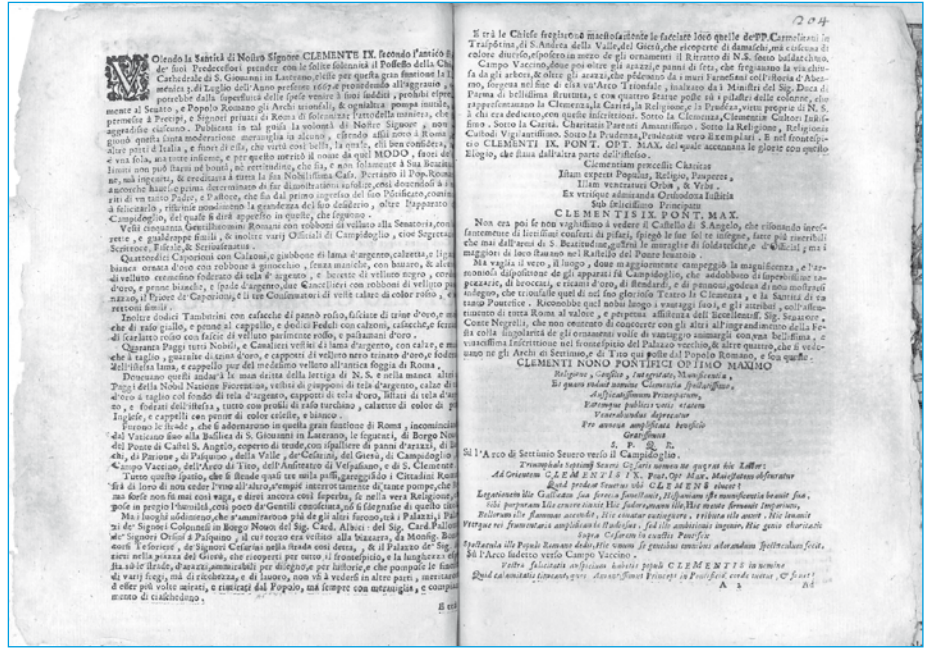 Volendo la Santità di Nostro Signore CLEMENTE IX. secondo l'antico
de' suoi Predecessori prender con le solite solennità il Possesso della
Cathedrale di S. Giovanni in Laterano, elesse per questa gran funtione la
menica 3. di Luglio dell'Anno presente 1667. e prouedendo all'aggrauio
potrebbe dalla superfluità delle spese venire à suoi sudditi, prohibì
mente al Senato, e Popolo Romano gli Archi trionfali, & ognialtra pompa
permesse à Prencipi, e Signori priuati di Roma di solenizar
aggradisse ciascuno. Publicata in tal guisa la volontà di Nostro Signore, non
gionò questa santa moderatione merauiglia in alcuno, essendo assai noto à Roma
altre parti d'Italia, e fuori di essa, che virtù così bella, la quale, essi ben considera,
è vna sola, ma tutte insieme, e per questo meritò il nome da quel MODO, fuori de
limiti non può starui nè bontà, nè rettitudine, che sia, e non solamente à Sua
ne, mà ingenita, & ereditaria à tutta la sua Nobilissima Casa. Pertanto il Pop. Roman
ancorche hauesse prima determinato di far dimostrationi
riti di vn tanto Padre, e Pastore, che sia dal primo ingresso del suo Pōtificato,
à felicitarlo, ristrinse nondimeno la grandezza del suo desiderio, oltre l'apparato
Campidoglio, del quale si dirà appresso in queste, che seguono.
Vestì cinquanta Gentilhuomini Romani con robboni di velluto alla Senatoria, con
rette, e gualdrappe simili, & inoltre varij Offitiali di Campidoglio, cioè Segretar
Scrittore, Fiscale, & Scribasenatus.
Quattordici Caporioni con Calzoni, e giubbone di lama d'argento, calzette, e liga
bianca ornata d'oro con robbone à ginocchio, senza maniche, con bauaro, &
di velluto cremesino foderato di tela d'argento, e berette di velluto negro,
d'oro, e penne bianche, e spade d'argento, due Cancellieri con robboni di velluto
nazzo, il Priore de' Caporioni, e li tre Conseruatori di veste talare di color rosso, e
rettoni simili.
Inoltre dodici Tamburini con casacche di panno rosso, fasciate di trine d'oro, e
che di raso giallo, e penne al cappello, e dodici Fedeli con calzoni, casacche, e
di scarlatto rosso con fascie di velluto parimente rosso, e passamani d'oro.
Quaranta Paggi tutti Nobili, e Cavalieri vestiti di lama d'argento, con calze, e
che à taglio, guarnite di trina d'oro, e cappotti di velluto nero trinato d'oro, e fodera
dell'istessa lama, e cappello pur del medesimo velluto all'antica foggia di Roma.
Doueuano questi andar à le man dritta della lettiga di N. S. e nella manca altri
Paggi della Nobil Natione Fiorentina, vestiti di giupponi di tela d'argento, calze di
d'oro à taglio col fondo di tela d'argento, cappotti di tela d'oro, listati di tela
no, e foderati dell'istessa, tutto con profili di raso turchino, calzette di color di
Inglese, e cappelli con penne di color celeste, e bianco.
Furono le strade, che si adornarono in questa gran funtione di Roma, incomincian
dal Vaticano sino alla Basilica di S. Giovanni in Laterano, le seguenti, di Borgo Nuo
del Ponte di Castel S. Angelo, coperto di tende, con ispalliere di panni d'arazzi, di
chi, di Parione, di Pasquino, della Valle, de' Cesarini, del Giesù, di Campidoglio
Campo Vaccino, dell'Arco di Tito, dell'Anfiteatro di Vespasiano, e di S. Clemente.
Tutto questo spatio, che si stende quasi tre mila passi, gareggiādo i Cittadini Roma
sirà di loro di non ceder l'vno all'altro, s'empiè interrottamente di tante pompe, che
ma forse non fù mai così vaga, e direi ancora così superba, se nella vera Religione,
pose in pregio l'humiltà, così poco da' Gentili conosciuta, nō si sdegnasse di quello
Ma i luoghi nōdimeno, che s'ammirarono più de gli altri furono, trà i Palazzi, i Pala
zi de' Signori Colonnesi in Borgo Nuouo del Sig. Card. Albici: del Sig. Card. Pallo
de' Signori Orsini à Pasquino, il cui torzo era vestito alla bizzarra, da Monsig. Bo
norsi Tesoriere, de' Signori Cesarini nella strada così detta, & il Palazzo de' Sig.
tieri nella piazza del Giesù, che ricoperti per tutto il frontespitio, e la lunghezza
sta sù le strade, d'arazzi, ammirabili per disegno, e per historie, e che pompose le
di varij fregi, mà di ricchezza, e di lauoro, non vsi à vedersi in altre parti, meritaro
d'esser più volte mirati, e rimirati dal Popolo, ma sempre con merauiglia, e compia
mento di ciascheduno.
E trà
204
E trà le Chiese fregiarono maestosamente le facciate loro quelle de' PP. Carmelitani in
Traspōtina, di S. Andrea della Valle, del Giesù, che ricoperte di damaschi, mà ciascuna di
colore diuerso, esposero in mezo de gli ornamenti il Ritratto di N. S. sotto baldacchino.
Campo Vaccino, doue poi oltre gli arazzi, e panni di seta, che fregiauano la via chiu-
sa da gli arbori, & oltre gli arazzi, che pēdeuano da i muri Farnesiani coll'istoria d'Abra-
mo, sorgeua nel fine di essa vn'Arco Trionfale, inalzato da i Ministri del Sig. Duca di
Parma di bellissima struttura, e con quattro statue poste sù i pilastri delle colonne, che
rappresentauano la Clemenza, la Carità, la Religione, e la Prudēza, virtù proprie di N. S.
à chi era dedicato, con queste inscrittioni. Sotto la Clemenza, Clementiæ Cultori Iustis-
simo. Sotto la Carità. Charitatis Parenti Amantissimo. Sotto la Religione, Religionis
Custodi Vigilantissimo. Sotto la Prudenza, Prudentiæ vero Exemplari. E nel frontespi-
tio CLEMENTI IX. PONT. OPT. MAX. del quale accennaua le glorie con questo
Elogio, che staua dall'altra parte dell'istesso.
Clementiam præcessit Charitas
Istam experti Populus, Religio, Pauperes,
Illam venerantur Orbis, & Vrbs.
Ex vtrisque admiranda Orthodoxa Iustitia
Sub felicissimo Principatu
CLEMENTIS IX. PONT. MAX.
Non era poi se non vaghissimo à vedere il Castello di S. Angelo, che risonando inces-
santemente di lietissimi conserti di pifari, spiegò le sue solite insegne, fatte più riueribili
che mai dall'armi di S. Beatitudine, guarnì le muraglie di soldatesche, e d'Offitiali, ma i
maggiori di loro stauano nel Rastello del Ponte leuatoio.
Ma vaglia il vero, il luogo, doue maggiormente campeggiò la magnificenza, e l'ar-
moniosa dispositione de gli apparati fù Campidoglio, che addobbato di superbissime ta-
pezzarie, di broccati, e ricami d'oro, di stendardi, e di pennoni, godeua di non mostrarsi
indegno, che trionfasse quel dì nel suo glorioso Teatro la Clemenza, e la Santità di vn
tanto Pontefice. Riconobbe quel nobil luogo i vantaggi suoi, e gli attribuì, coll'assen-
timento di tutta Roma al valore, e perpetua assistenza dell'Eccellentiss. Sig. Senatore
Conte Negrelli, che non contento di concorrere con gli altri all'ingrandimento della Fe-
sta colla singolarità de gli ornamenti volle di vantaggio animargli con vna bellissima, e
viuacissima Inscrittione nel frontespitio del Palazzo vecchio, & altre quattro, che si vede-
uano nè gli Archi di Settimio, e di Tito qui poste dal Popolo Romano, e son queste.
CLEMENTI NONO PONTIFICI OPTIMO MAXIMO
Religione, Consilio, Integritate, Munificentia,
Et quam reddat nomine Clementia spectatissimo,
Auspicatissimum Principatum,
Patremque publicis votis etatem
Venerabundus deprecatur
Pro annona amplificata beneficio
Gratissimus
S. P. Q. R.
Sù l'Arco di Settimio Seuero verso il Campidoglio.
Triumphale Septimij Seueri Cæsaris nomen ne quæras hic Lector:
Ad Orientem CLEMENTIS IX. Pont. Opt. Max. Maiestatem obscuratur
Quid prodest Seuerus vbi CLEMENS viuit?
Legationem ille Gallicam sua ferocia funestauit, Hispaniam iste munificentia beauit sua,
Sibi purpuram ille cruore tinxit: Hic sudore, manum ille, Hic mente firmauit Imperium,
Bellorum ille flammam accendit, Hic conatur extinguere, tributa ille auxit. Hic leuauit
Vterque rei frumentariæ amplificandæ studiosus. sed ille ambitionis ingenio, Hic genio charitatis
Supra Cæsarem in cunctis Pontifex
Spectacula ille Populo Romano dedit, Hic vnum se gentibus omnibus adorandum spectaculum fecit.
Sù l'Arco sudetto verso Campo Vaccino.
Vestra felicitatis auspicium habetis populi CLEMENTIS in nomine
A 2